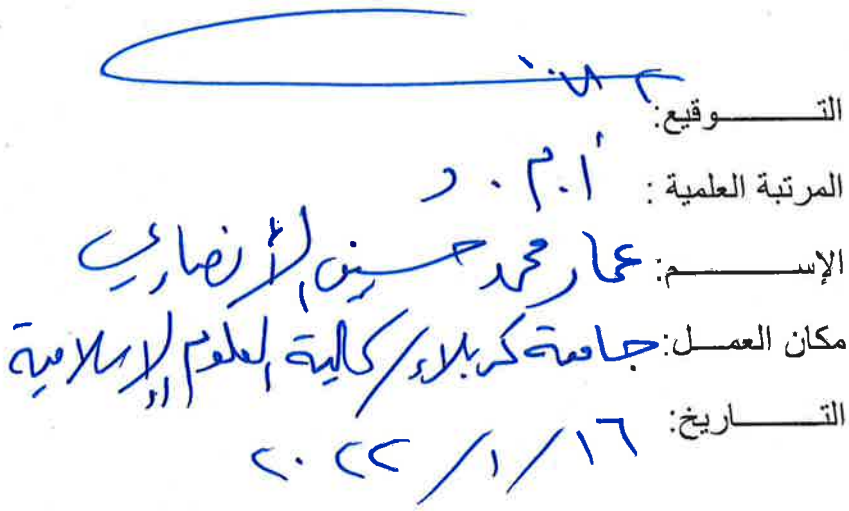 التـــــــوقيع:
المرتبة العلمية : أ.م.د
الإســـــــم: عمار محمد حسين الأنصاري
مكان العمـــل: جامعة كربلاء/كلية العلوم الإسلامية
التـــــــاريخ: ١٦/١/٢٠٢٢